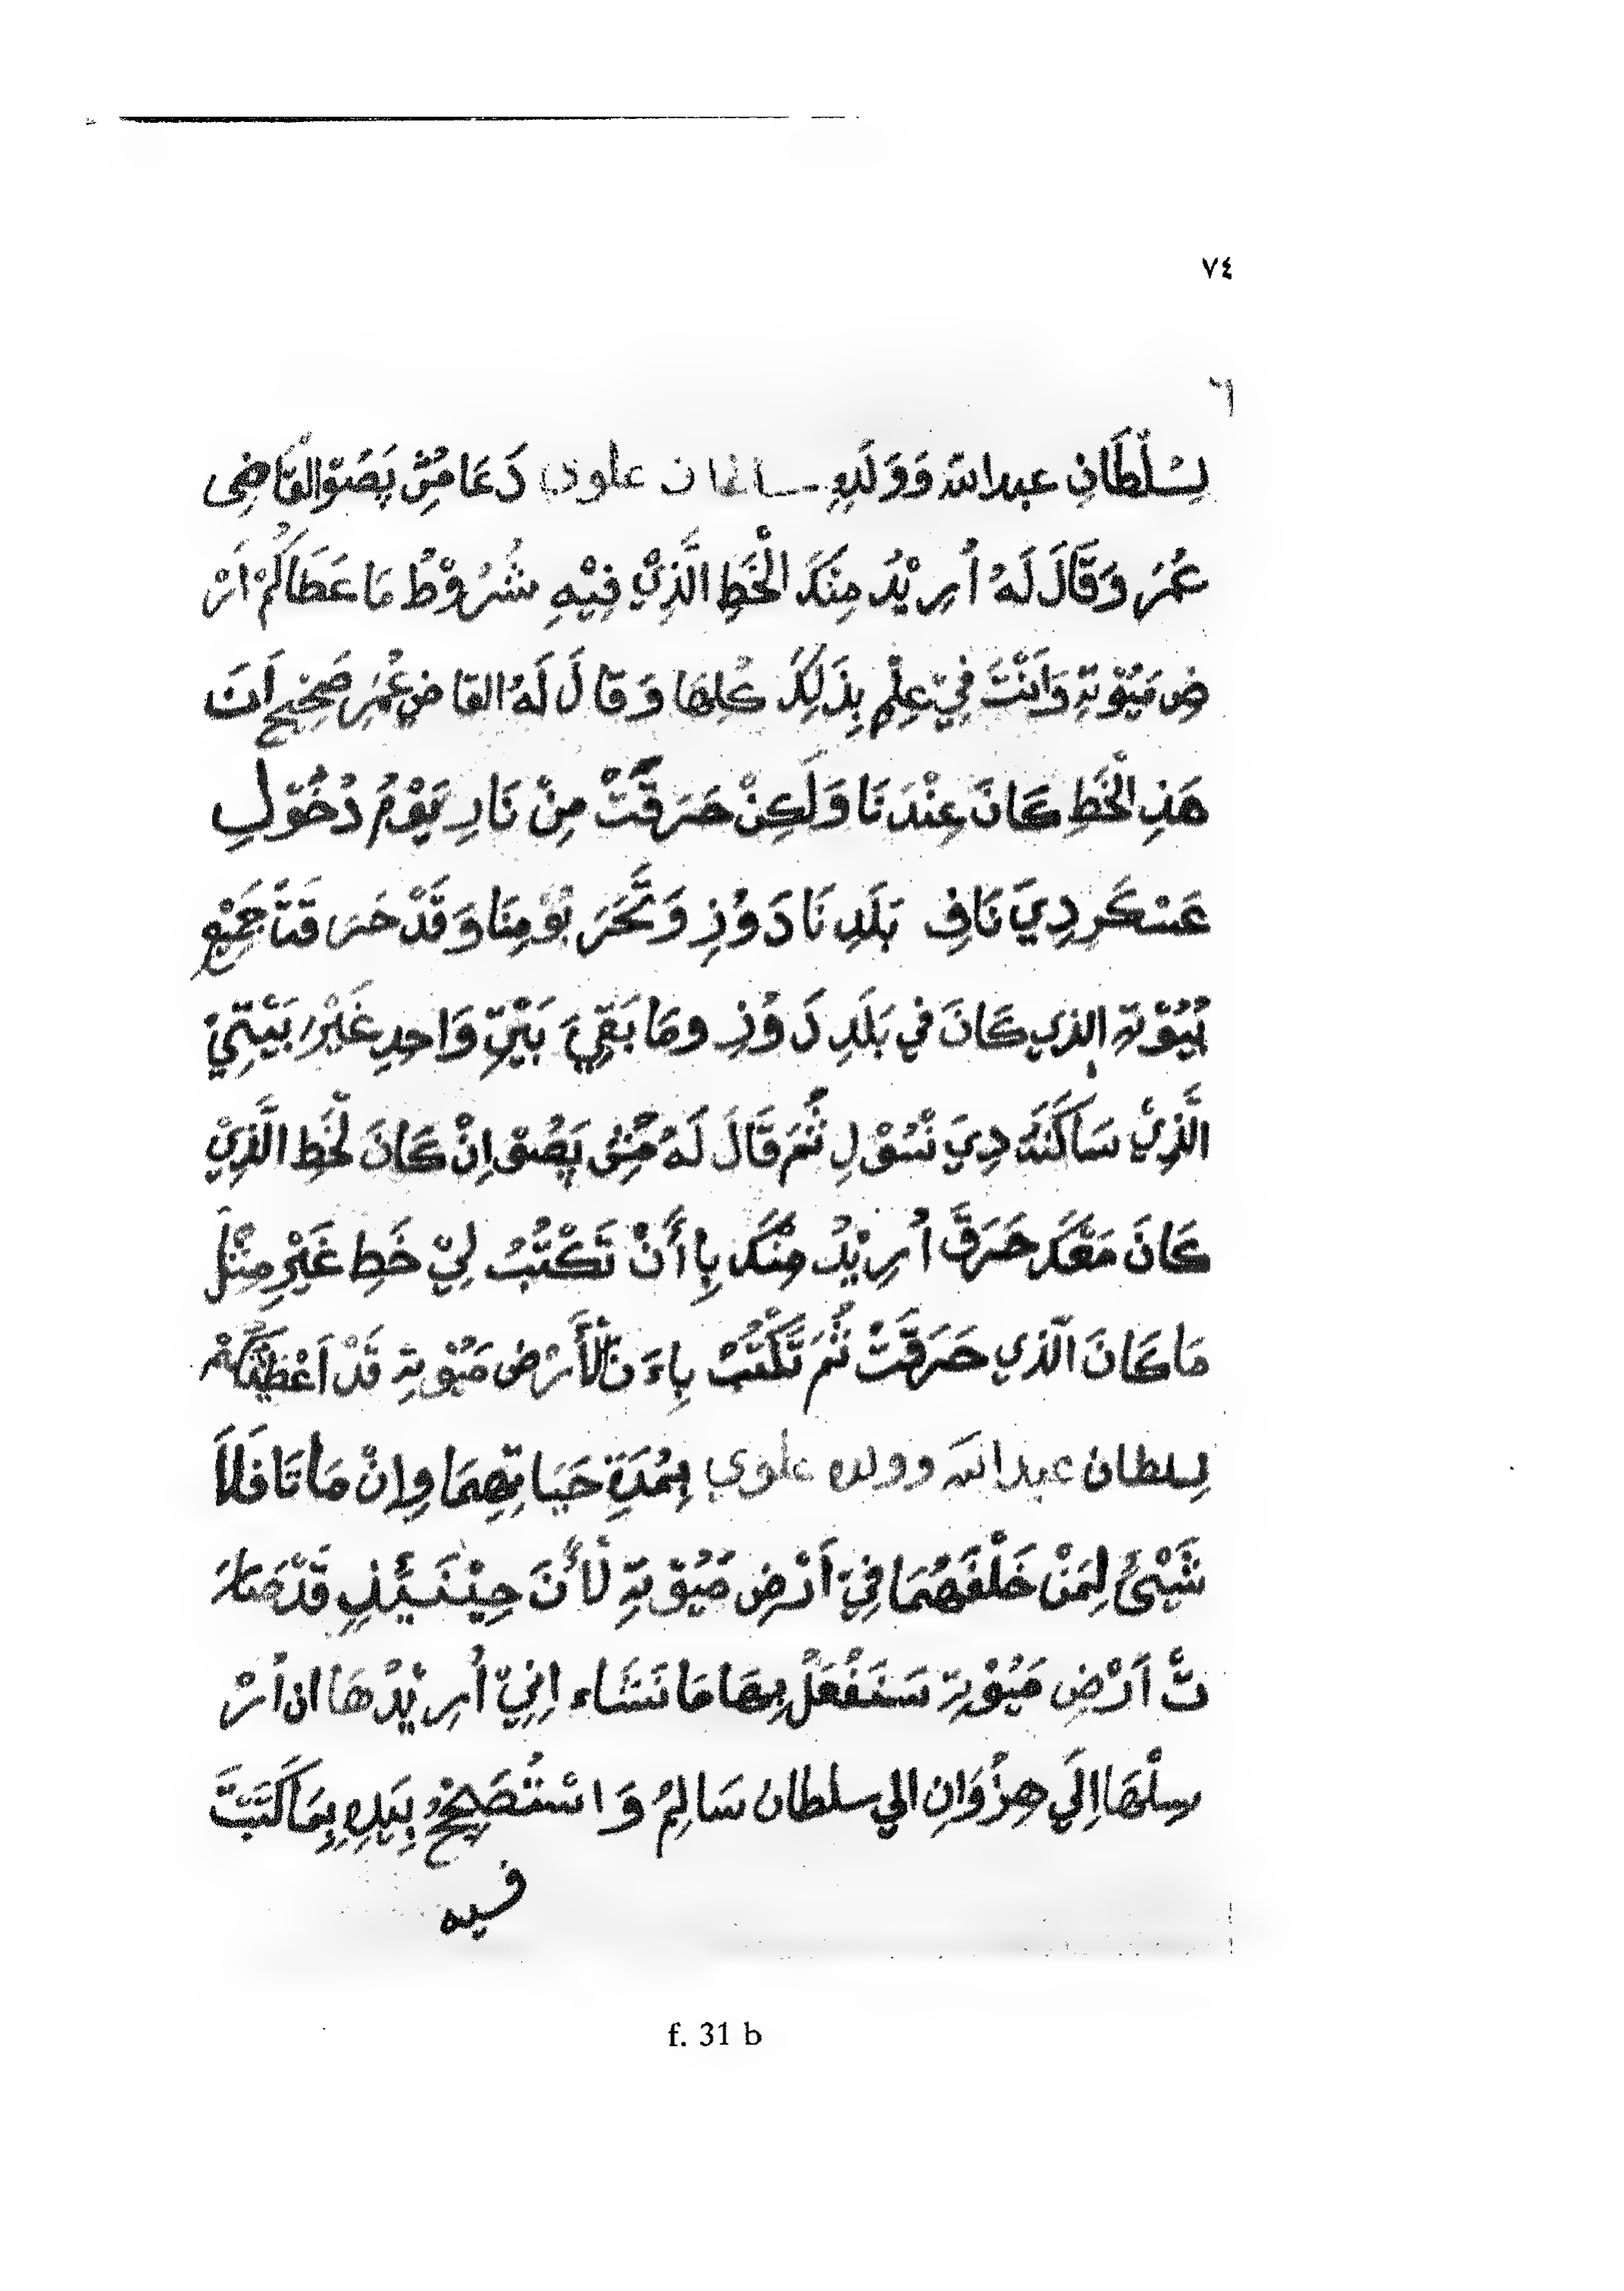 ٧٤
٦
لِسُلْطَانِ عبدالله وَوَلَدِهِ سلطان علوي دَعَا مُنِّ پَصَوْ القَاضِى
عُمَرَ وَقَالَ لَهُ اُرِيْدُ مِنْكَ الْخَطِ الَّذِيْ فِيْهِ شُرُوْطُ مَا عَطَاكُمْ اَرْ
ضِ مَيُوْتِهِ وَاَنْتَ فِيْ عِلْمِ بِذَلِكَ كُلِهَا وَقَالَ لَهُ القاضِ عُمَرِ صَحِيْح اَنَ
هَذِ الْخَطِ كَانَ عِنْدَنَا وَلَكِنْ حَرَقَتْ مِنْ نَارِ يَوْمُ دُخُوْلِ
عَسْكَرِدِيَ نَافِ بَلَدِنَا دَوُزِ وَتَّحَرَبُوْ مِنَا وَقَدْ حَرَقَتَ جَمِيْع
بُيُوْتِ الذي كَانَ فِي بَلَدِ دَوُزِ ومَا بَقِيَ بَيْتِ وَاحِدِ غَيْرَ بَيْتِيْ
الَّذِيْ سَاكَنَهُ دِيَ نْسُوْلِ ثُمَ قَالَ لَهُ مُنِ پَصَوْ اِنْ كَانَ لْخَطِ الَّذِيْ
كَانَ مَعَكَ حَرَقَ اُرِيْدُ مِنْكَ بِا أَنْ تَكْتُبُ لِيْ خَطِ غَيْرِ مِثْلَ
مَا كَانَ الّذي حَرَقَتْ ثُمَ تَّكْتُبْ بِاءَن لْأَرْض مَيُوْتِهِ قَدْ اَعْطَيْنَاكُمْ
لسلطان عبدالله وولده علوي بِمُدَةِ حَيَاتِهِمَا وِانْ مَاتَا فَلاَ
شَيْئُ لِمَنْ خَلْفَهُمَا فِيْ اَرْضِ مَيُوْتِهِ لأَنَ حِيْنَئِذٍ قَدْ صَارَ
تْ اَرْضِ مَيُوْتِهِ سَنَفْعَلْ بِهَا مَا نَشَاء اِنِيْ اُرِيْدُهَا ان اُرْ
سِلْهَا اِلَي هِزْوَانِ الي سلطان سَالِمُ وَاسْتُصَحِحُ بِيَدِهِ بِمَا كَتَبَتَ
فيه
f. 31 b